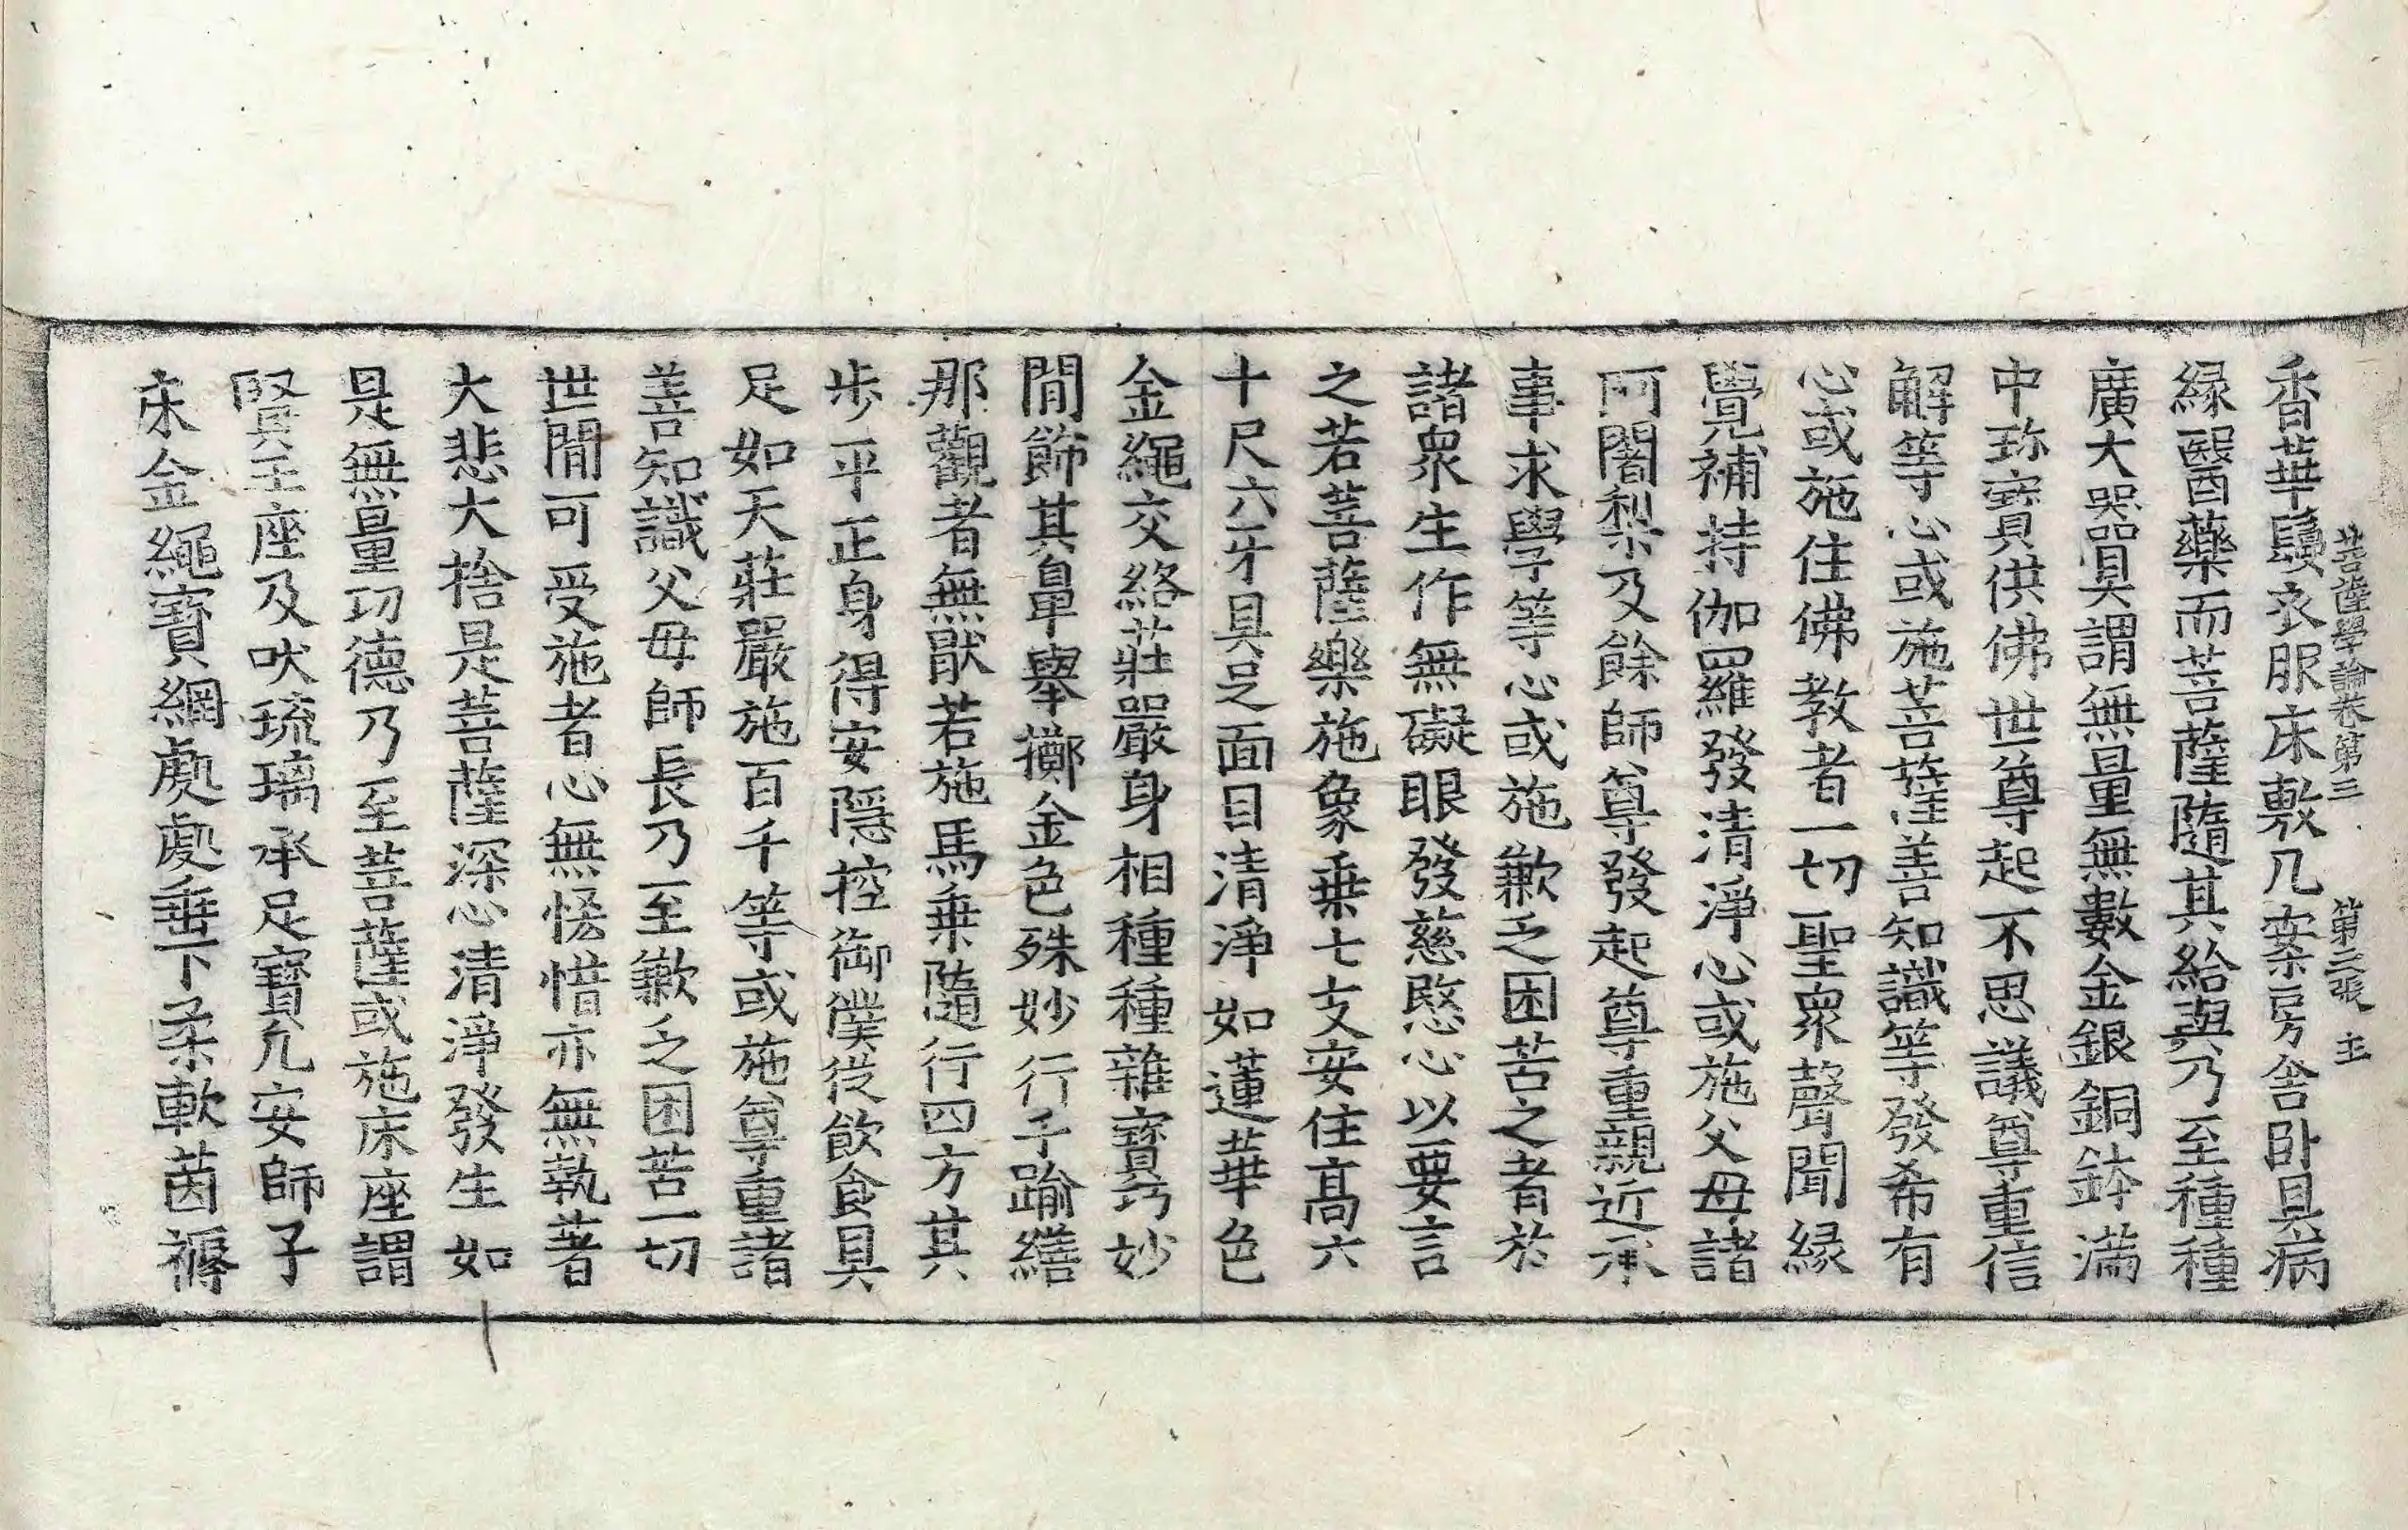 菩薩學論卷第三 第三張 主
香華鬘衣服床敷几案房舍卧具病
緣醫藥而菩薩隨其給與乃至種種
廣大器具謂無量無數金銀銅鉢滿
中珎寶供佛世尊起不思議尊重信
解等心或施菩薩善知識等發希有
心或施住佛教者一切聖衆聲聞緣
覺補持伽羅發清淨心或施父母諸
阿闍梨及餘師尊發起尊重親近承
事求學等心或施歉乏困苦之者於
諸衆生作無礙眼發慈愍心以要言
之若菩薩樂施象乗七支安住高六
十尺六牙具足面目清淨如蓮華色
金繩交絡莊嚴身相種種雜寶巧妙
間飾其鼻舉擲金色殊妙行千踰繕
那觀者無猒若施馬乗隨行四方其
步平正身得安隱控御僕從飲食具
足如天莊嚴施百千等或施尊重諸
善知識父母師長乃至歉乏困苦一切
世間可受施者心無悋惜亦無執著
大悲大捨是菩薩深心清淨發生如
是無量功德乃至菩薩或施床座謂
賢王座及吠琉璃承足寶几安師子
床金繩寶網處處垂下柔軟茵褥